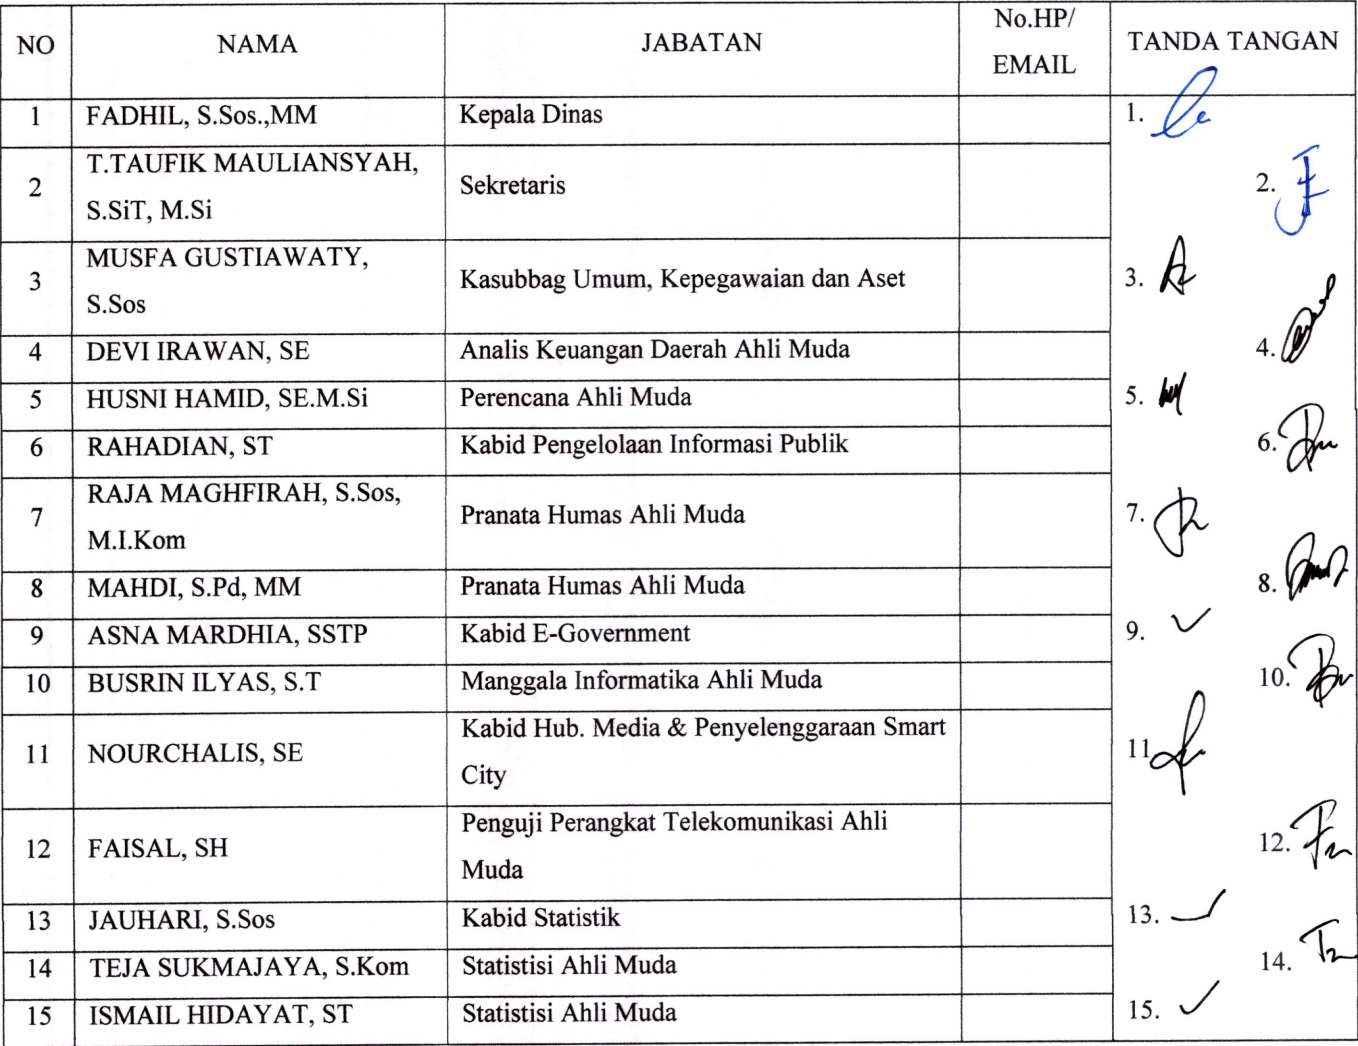 NO NAMA JABATAN No.HP/ TANDA TANGAN
EMAIL
1 FADHIL, S.Sos.,MM Kepala Dinas 1.
T.TAUFIK MAULIANSYAH,
2 Sekretaris 2.
S.SiT, M.Si
MUSFA GUSTIAWATY,
3 Kasubbag Umum, Kepegawaian dan Aset 3.
S.Sos
4 DEVI IRAWAN, SE Analis Keuangan Daerah Ahli Muda 4.
5 HUSNI HAMID, SE.M.Si Perencana Ahli Muda 5.
6 RAHADIAN, ST Kabid Pengelolaan Informasi Publik 6.
RAJA MAGHFIRAH, S.Sos,
7 Pranata Humas Ahli Muda 7.
M.I.Kom
8 MAHDI, S.Pd, MM Pranata Humas Ahli Muda 8.
9 ASNA MARDHIA, SSTP Kabid E-Government 9. ✓
10 BUSRIN ILYAS, S.T Manggala Informatika Ahli Muda 10.
Kabid Hub. Media & Penyelenggaraan Smart
11 NOURCHALIS, SE 11
City
Penguji Perangkat Telekomunikasi Ahli
12 FAISAL, SH 12.
Muda
13 JAUHARI, S.Sos Kabid Statistik 13. ✓
14 TEJA SUKMAJAYA, S.Kom Statistisi Ahli Muda 14.
15 ISMAIL HIDAYAT, ST Statistisi Ahli Muda 15. ✓